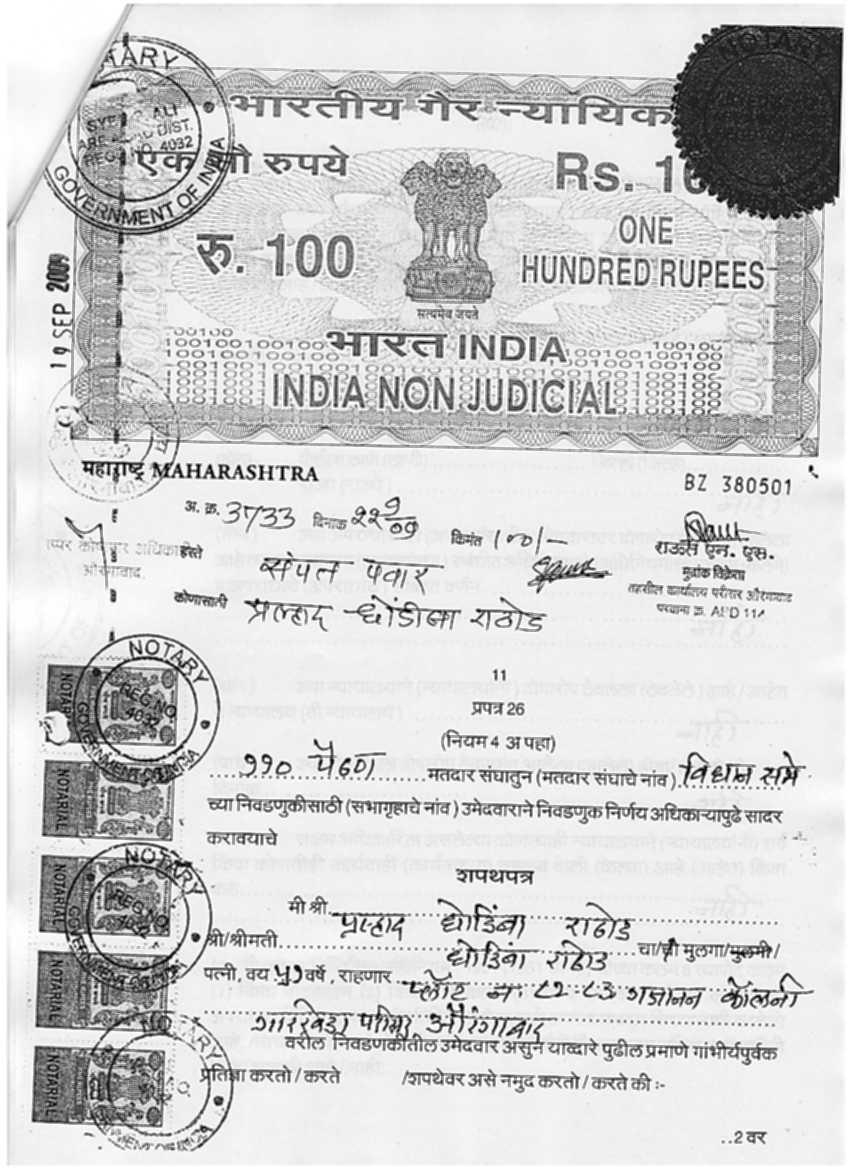 NOTARY
GOVERNMENT OF INDIA
REG. NO. 4032
NOTARY
भारतीय गैर न्यायिक
एक सौ रुपये
Rs. 10
रु. 100
ONE
HUNDRED RUPEES
सत्यमेव जयते
19 SEP 2009
भारत INDIA
INDIA NON JUDICIAL
महाराष्ट्र MAHARASHTRA
BZ 380501
अ. क्र. 3733 दिनाक किंमत 100/-
राऊत एन. एस.
मुद्रांक विक्रेता
तहसील कार्यालय परीसर औरंगाबाद
परवाना क्र.
हस्ते
औरंगाबाद
कोणासाठी प्रल्हाद धोंडीबा राठोड
NOTARY
REG. NO. 4032
GOVERNMENT OF INDIA
NOTARIAL
NOTARIAL
NOTARIAL
NOTARIAL
NOTARIAL
11
प्रपत्र 26
(नियम 4 अ पहा)
110 पैठण मतदार संघातुन (मतदार संघाचे नांव) विधान सभे
च्या निवडणुकीसाठी (सभागृहाचे नांव) उमेदवाराने निवडणुक निर्णय अधिकाऱ्यापुढे सादर
करावयाचे
शपथपत्र
मी श्री. प्रल्हाद धोंडिबा राठोड
श्री/श्रीमती धोंडिबा राठोड चा/ची मुलगा/मुलगी/
पत्नी, वय ५१ वर्षे, राहणार प्लॉट नं ८२-८३ गजानन कॉलनी
गारखेडा परिसर औरंगाबाद
वरील निवडणकीतील उमेदवार असुन याव्दारे पुढील प्रमाणे गांभीर्यपुर्वक
प्रतिज्ञा करतो / करते /शपथेवर असे नमुद करतो / करते की :-
..2 वर